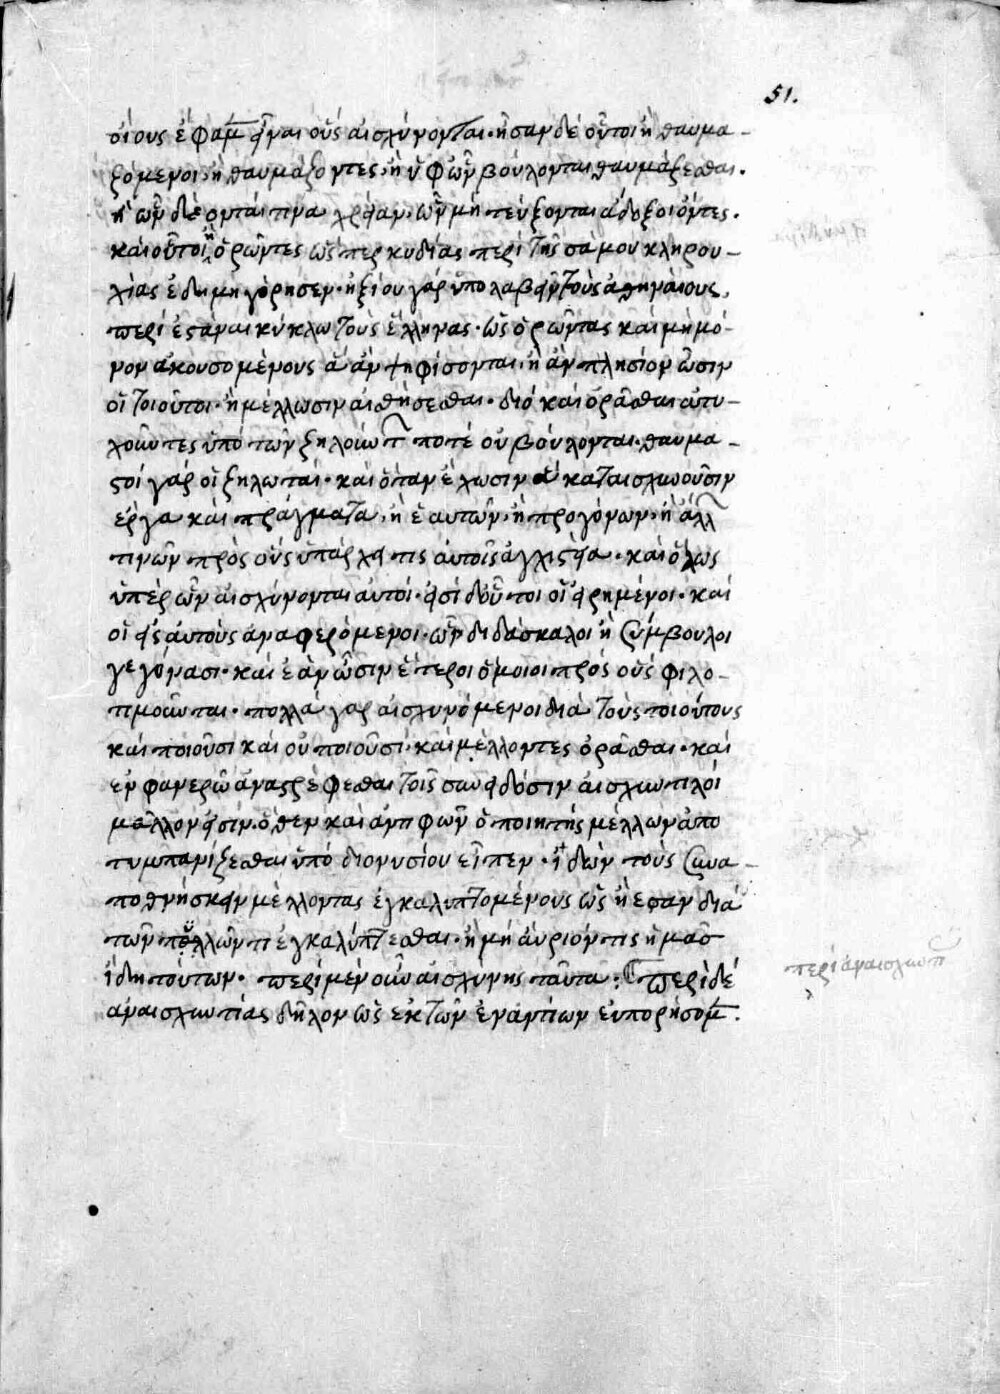 51.
οἵους ἔφαμ εἶναι οὓς αἰσχύνονται· ἦσαν δὲ οὗτοι ἢ θαυμα-
ζόμενοι, ἢ θαυμάζοντες, ἢ ὑφ' ὧν βούλονται θαυμάζεσθαι.
ἢ ὧν δέονταί τινα χρείαν, ὧν μὴ τεύξονται ἄδοξοι ὄντες.
καὶ οὗτοι ἢ ὁρῶντες ὥσπερ κυδίας περὶ τῆς σάμου κληρου-
χίας ἐδημηγόρησεν· ἠξίου γὰρ ὑπολαβεῖν τοὺς ἀθηναίους,
περιεστάναι κύκλω τοὺς ἕλληνας· ὡς ὁρῶντας καὶ μὴ μό-
νον ἀκουσομένους ἃ ἂν ψηφίσονται, ἢ ἂν πλησίον ὦσιν
οἱ τοιοῦτοι· ἢ μέλλωσιν αἰσθήσεσθαι· διὸ καὶ ὁρᾶσθαι ἀτυ-
χοῦντες ὑπὸ τῶν ζηλούντ ποτὲ οὐ βούλονται· θαυμα-
στοὶ γὰρ οἱ ζηλωταί· καὶ ὅταν ἔχωσιν ἃ καταισχυνοῦσιν
ἔργα καὶ πράγματα, ἢ ἑαυτῶν, ἢ προγόνων, ἢ ἄλλ
τινῶν πρὸς οὓς ὑπάρχει τις αὐτοῖς ἀγχιστεία· καὶ ὅλως
ὑπὲρ ὧν αἰσχύνονται αὐτοί· εἰσὶ δ' οὗτοι οἱ εἰρημένοι· καὶ
οἱ εἰς αὐτοὺς ἀναφερόμενοι· ὧν διδάσκαλοι ἢ σύμβουλοι
γεγόνασι· καὶ ἐὰν ὦσιν ἕτεροι ὅμοιοι πρὸς οὓς φιλο-
τιμοῦνται· πολλὰ γὰρ αἰσχυνόμενοι διὰ τοὺς τοιούτους
καὶ ποιοῦσι καὶ οὐ ποιοῦσι· καὶ μέλλοντες ὁρᾶσθαι· καὶ
ἐν φανερῶ ἀναστρέφεσθαι τοῖς συνειδόσιν αἰσχυντηλοὶ
μᾶλλον εἰσίν· ὅθεν καὶ ἀντιφῶν ὁ ποιητὴς μέλλων ἀπο
τυμπανίζεσθαι ὑπὸ διονυσίου εἶπεν· ἰδὼν τοὺς συνα-
ποθνήσκειν μέλλοντας ἐγκαλυπτομένους ὡς ἤεσαν διὰ
τῶν πυλῶν τί ἐγκαλύπτεσθαι· ἢ μὴ αὔριόν τις ἡμᾶς
ἴδη τούτων· περὶ μὲν οὖν αἰσχύνης ταῦτα: περὶ δὲ
ἀναισχυντίας δῆλον ὡς ἐκ τῶν ἐναντίων εὐπορήσομ.
περὶ ἀναισχυντ